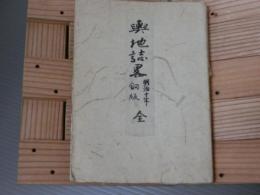 輿地誌畧 明治十年 銅版 全